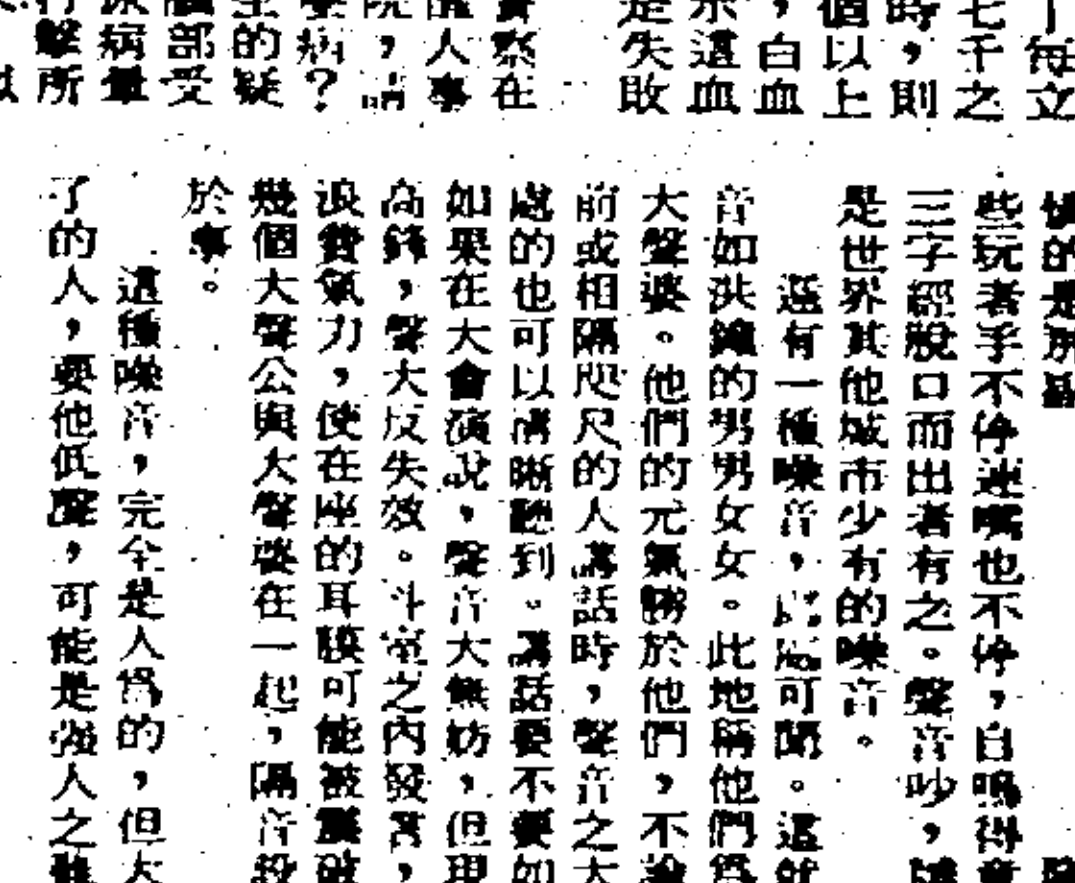 每立
七千之
時，則
個以上
，白血
示這血
是失敗
察在
人事
院，請
病？
的疑
部受
病量
擊所
些玩者手不停連嘴也不停，自鳴得意
三字經脫口而出者有之。聲音吵，
是世界其他城市少有的噪音。
還有一種噪音，處處可聞。這就
音如洪鐘的男男女女。此地稱他們爲
大聲婆。他們的元氣勝於他們，不論
前或相隔咫尺的人講話時，聲音之大
處的也可以清晰聽到。講話要不要如
如果在大會演說，聲音大無妨，但現
高鋒，聲大反失效。斗室之內發言，
浪費氣力，使在座的耳膜可能被震破
幾個大聲公與大聲婆在一起，隔音設
於事。
這種噪音，完全是人爲的，但大
了的人，要他低聲，可能是強人之難